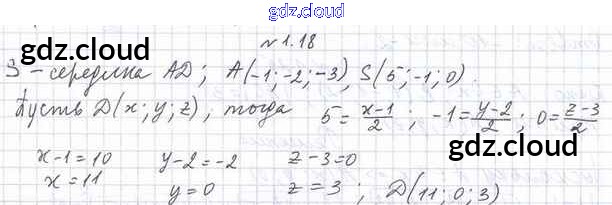 gdz.cloud
№1.18
gdz.cloud gdz.cloud
S - середина AD; A(-1; -2; -3), S(5; -1; 0).
Пусть D(x; y; z), тогда 5 = \frac{x-1}{2}; -1 = \frac{y-2}{2}; 0 = \frac{z-3}{2}
gdz.cloud
x-1=10 y-2=-2 z-3=0
x=11 y=0 z=3; D(11; 0; 3)
gdz.cloud